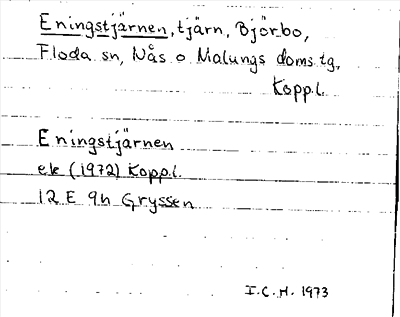 Eningstjärnen, tjärn, Björbo,
Floda sn, Nås o Malungs doms.tg,
Kopp.l.
Eningstjärnen
ek (1972) Kopp.l.
12 E 9h Gryssen
I.C.H. 1973